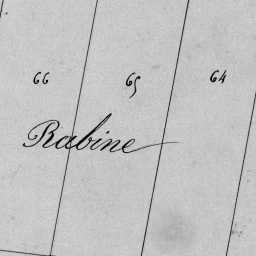 66 65 64
Rabine